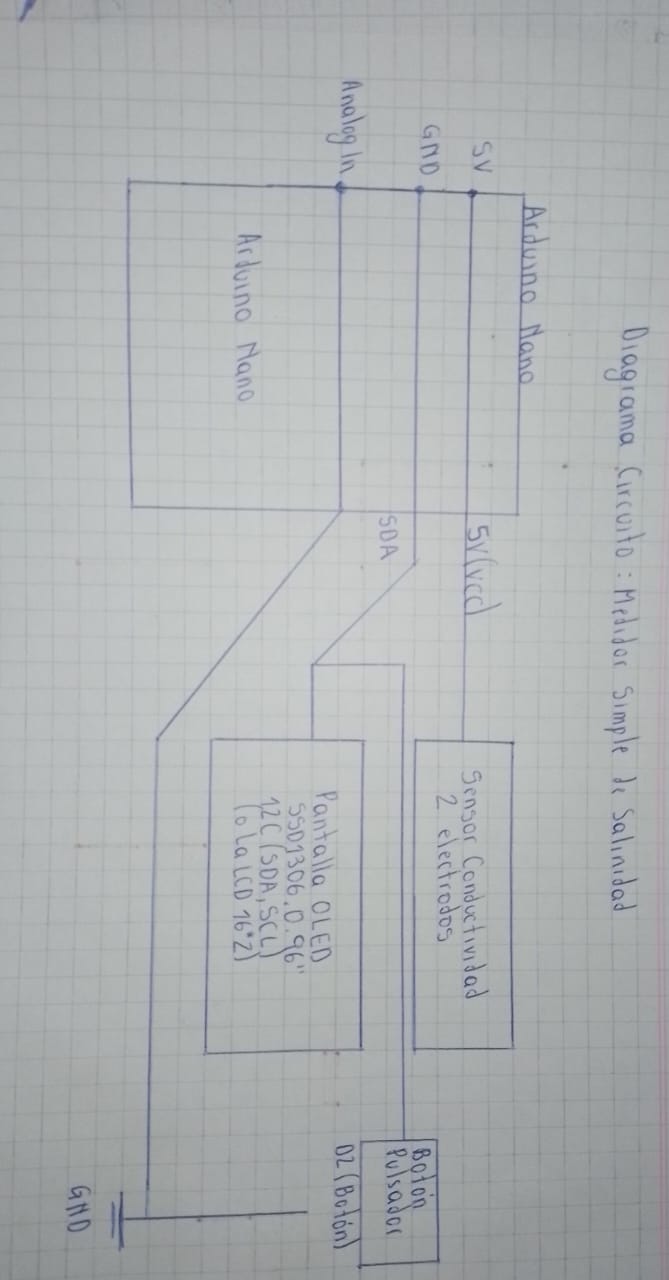 Diagrama Circuito: Medidor Simple de Salinidad
Arduino Nano
5V
GND
Analog In
Arduino Nano
5V(vcc)
SDA
Sensor Conductividad
2 electrodos
Pantalla OLED
SSD1306.0.96"
I2C (SDA, SCL)
(o La LCD 16*2)
Botón
Pulsador
D2 (Botón)
GND